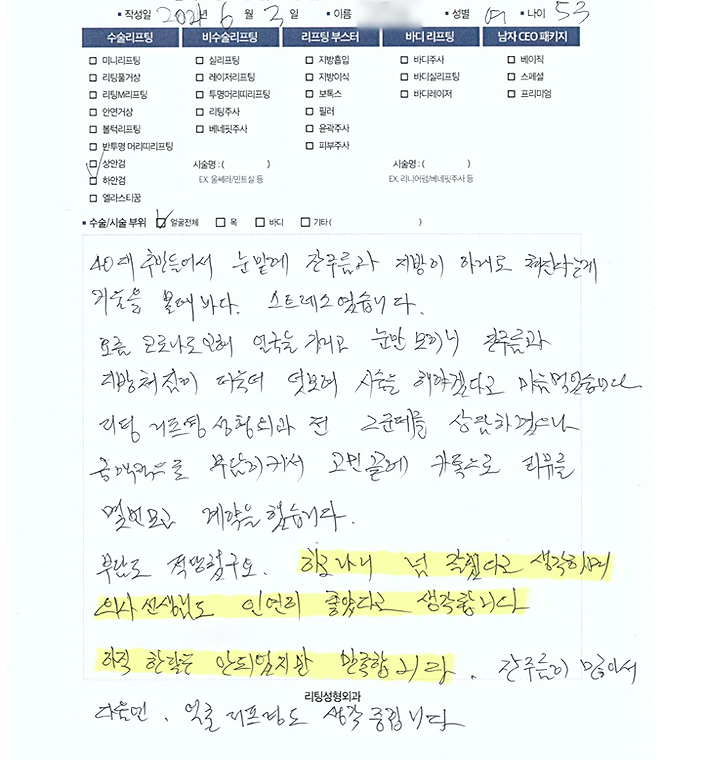 ▪ 작성일 2021년 6월 2일 ▪ 이름 ▪ 성별 여 ▪ 나이 53
수술리프팅 비수술리프팅 리프팅 부스터 바디 리프팅 남자 CEO 패키지
□ 미니리프팅 □ 실리프팅 □ 지방흡입 □ 바디주사 □ 베이직
□ 리팅풀거상 □ 레이저리프팅 □ 지방이식 □ 바디실리프팅 □ 스페셜
□ 리팅M리프팅 □ 투명머리띠리프팅 □ 보톡스 □ 바디레이저 □ 프리미엄
□ 안면거상 □ 리팅주사 □ 필러
□ 볼턱리프팅 □ 베네핏주사 □ 윤곽주사
□ 반투명 머리띠리프팅 □ 피부주사
□ 상안검 시술명 : ( ) 시술명 : ( )
☑ 하안검 EX. 울쎄라/민트실 등 EX. 리니어펌/베네핏주사 등
□ 엘라스티꿈
▪ 수술/시술 부위 ☑ 얼굴전체 □ 목 □ 바디 □ 기타 ( )
40대 후반들어서 눈밑에 잔주름과 지방이 아래로
거울을 볼때마다. 스트레스였습니다.
요즘 코로나로 인해 얼굴을 가리고 눈만 보이니 잔주름과
지방처짐이 더욱더 돋보여 시술을 해야겠다고 마음먹었습니다
리팅 리프팅 성형외과 전 그군데를 상담하였으나
금액적으로 부담이커서 고민끝에 카톡으로 리뷰를
몇번보고 계약을 했습니다.
부담도 적당했구요. 하고나니 넘 잘했다고 생각하며
의사 선생님도 인연이 좋았다고 생각합니다
아직 한달은 안되었지만 만족합니다. 잔주름이 많아서
리팅성형외과
다음엔. 얼굴 리프팅도 생각 중입니다